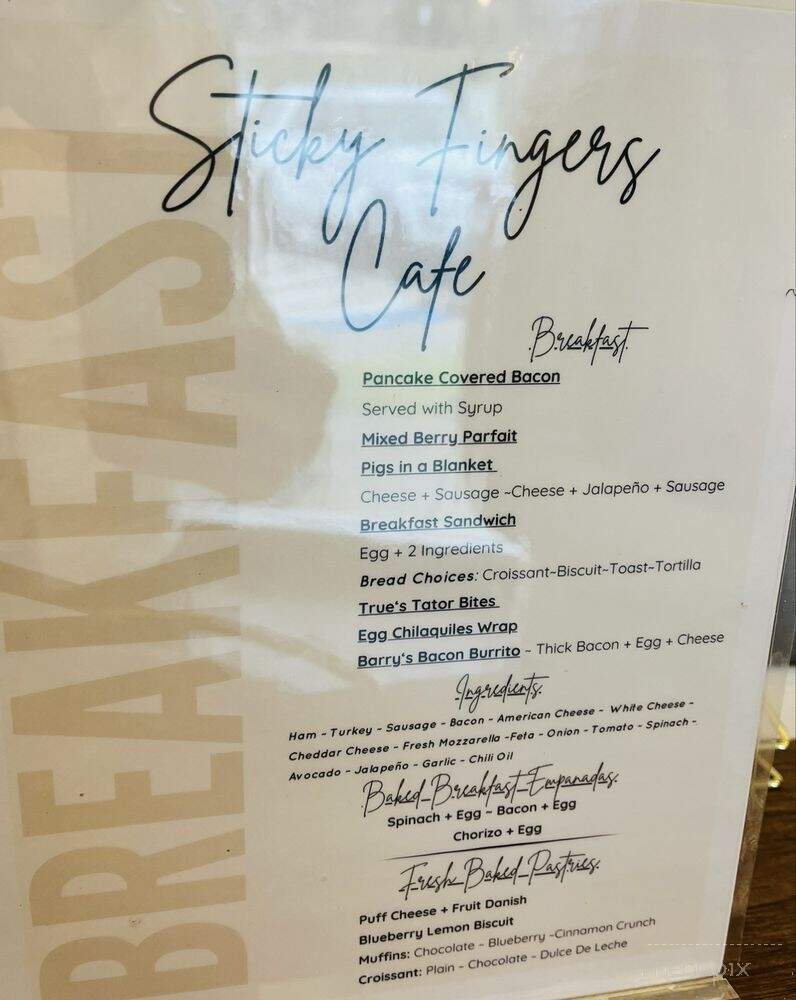 BREAKFAST
Sticky Fingers
Cafe
Breakfast
Pancake Covered Bacon
Served with Syrup
Mixed Berry Parfait
Pigs in a Blanket
Cheese + Sausage ~Cheese + Jalapeño + Sausage
Breakfast Sandwich
Egg + 2 Ingredients
Bread Choices: Croissant~Biscuit~Toast~Tortilla
True's Tator Bites
Egg Chilaquiles Wrap
Barry's Bacon Burrito ~ Thick Bacon + Egg + Cheese
Ingredients
Ham ~ Turkey ~ Sausage ~ Bacon ~ American Cheese ~ White Cheese ~
Cheddar Cheese ~ Fresh Mozzarella ~Feta ~ Onion ~ Tomato ~ Spinach ~
Avocado ~ Jalapeño ~ Garlic ~ Chili Oil
Baked Breakfast Empanadas
Spinach + Egg ~ Bacon + Egg
Chorizo + Egg
Fresh Baked Pastries
Puff Cheese + Fruit Danish
Blueberry Lemon Biscuit
Muffins: Chocolate ~ Blueberry ~Cinnamon Crunch
Croissant: Plain ~ Chocolate ~ Dulce De Leche